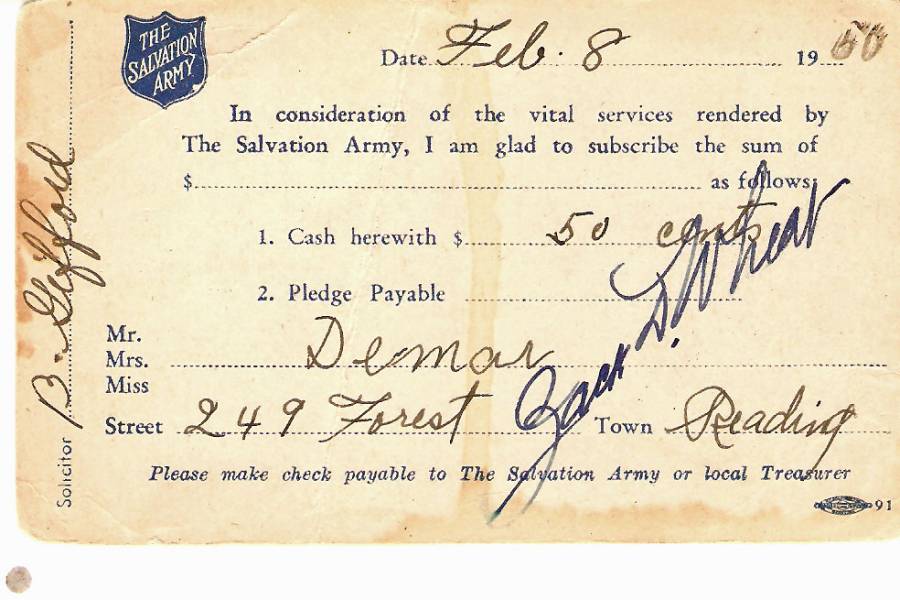 THE
SALVATION
ARMY
Date Feb. 8 19 50
In consideration of the vital services rendered by
The Salvation Army, I am glad to subscribe the sum of
$ as follows:
1. Cash herewith $ 50 cents
2. Pledge Payable
Mr.
Mrs. Demar
Miss
Street 249 Forest Town Reading
Zack D. Wheat
Please make check payable to The Salvation Army or local Treasurer
91
Solicitor B. Gifford